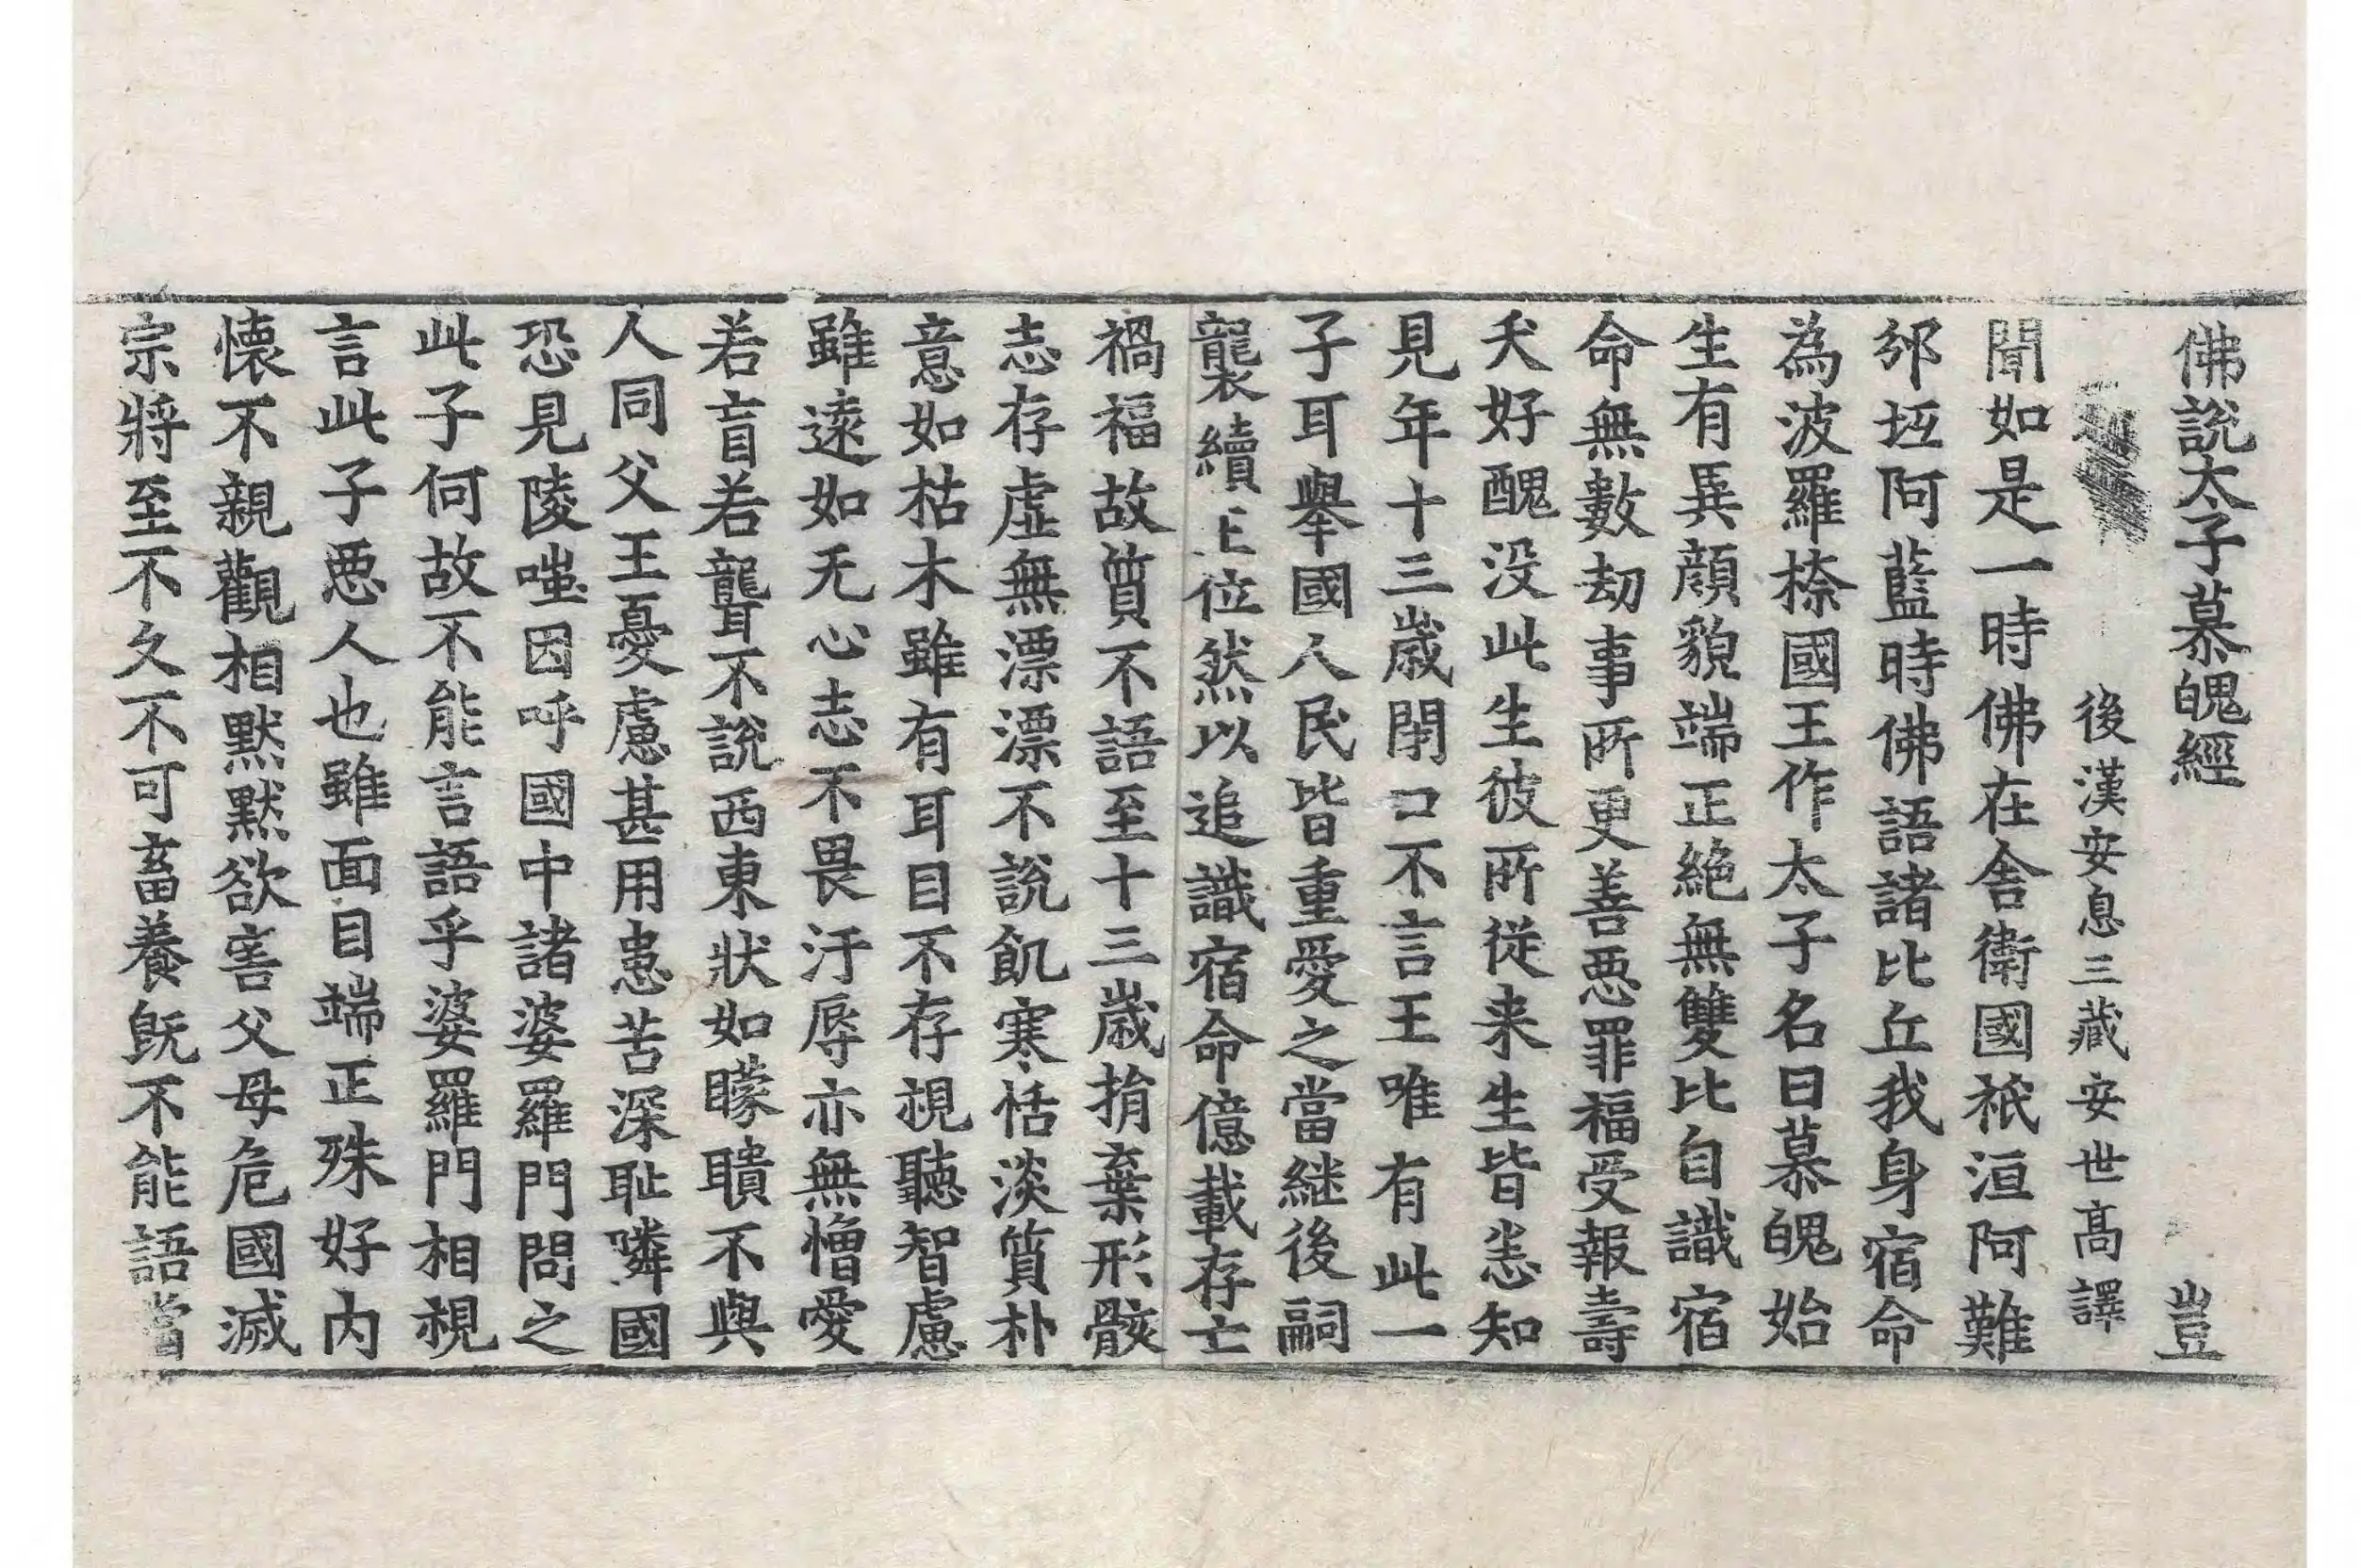 佛說太子慕魄經 豈
後漢安息三藏安世高譯
聞如是一時佛在舍衛國祇洹阿難
邠坻阿藍時佛語諸比丘我身宿命
為波羅㮈國王作太子名曰慕魄始
生有異顏貌端正絶無雙比自識宿
命無數劫事所更善惡罪福受報壽
夭好醜没此生彼所從来生皆悉知
見年十三歳閉口不言王唯有此一
子耳舉國人民皆重愛之當継後嗣
襲續上位然以追識宿命億載存亡
禍福故質不語至十三歳捐棄形骸
志存虛無漂漂不說飢寒恬淡質朴
意如枯木雖有耳目不存視聽智慮
雖遠如无心志不畏汙辱亦無憎愛
若盲若聾不說西東狀如矇聵不與
人同父王憂慮甚用患苦深耻隣國
恐見陵嗤因呼國中諸婆羅門問之
此子何故不能言語乎婆羅門相視
言此子惡人也雖面目端正殊好内
懷不親觀相黙黙欲害父母危國滅
宗將至不久不可畜養旣不能語當